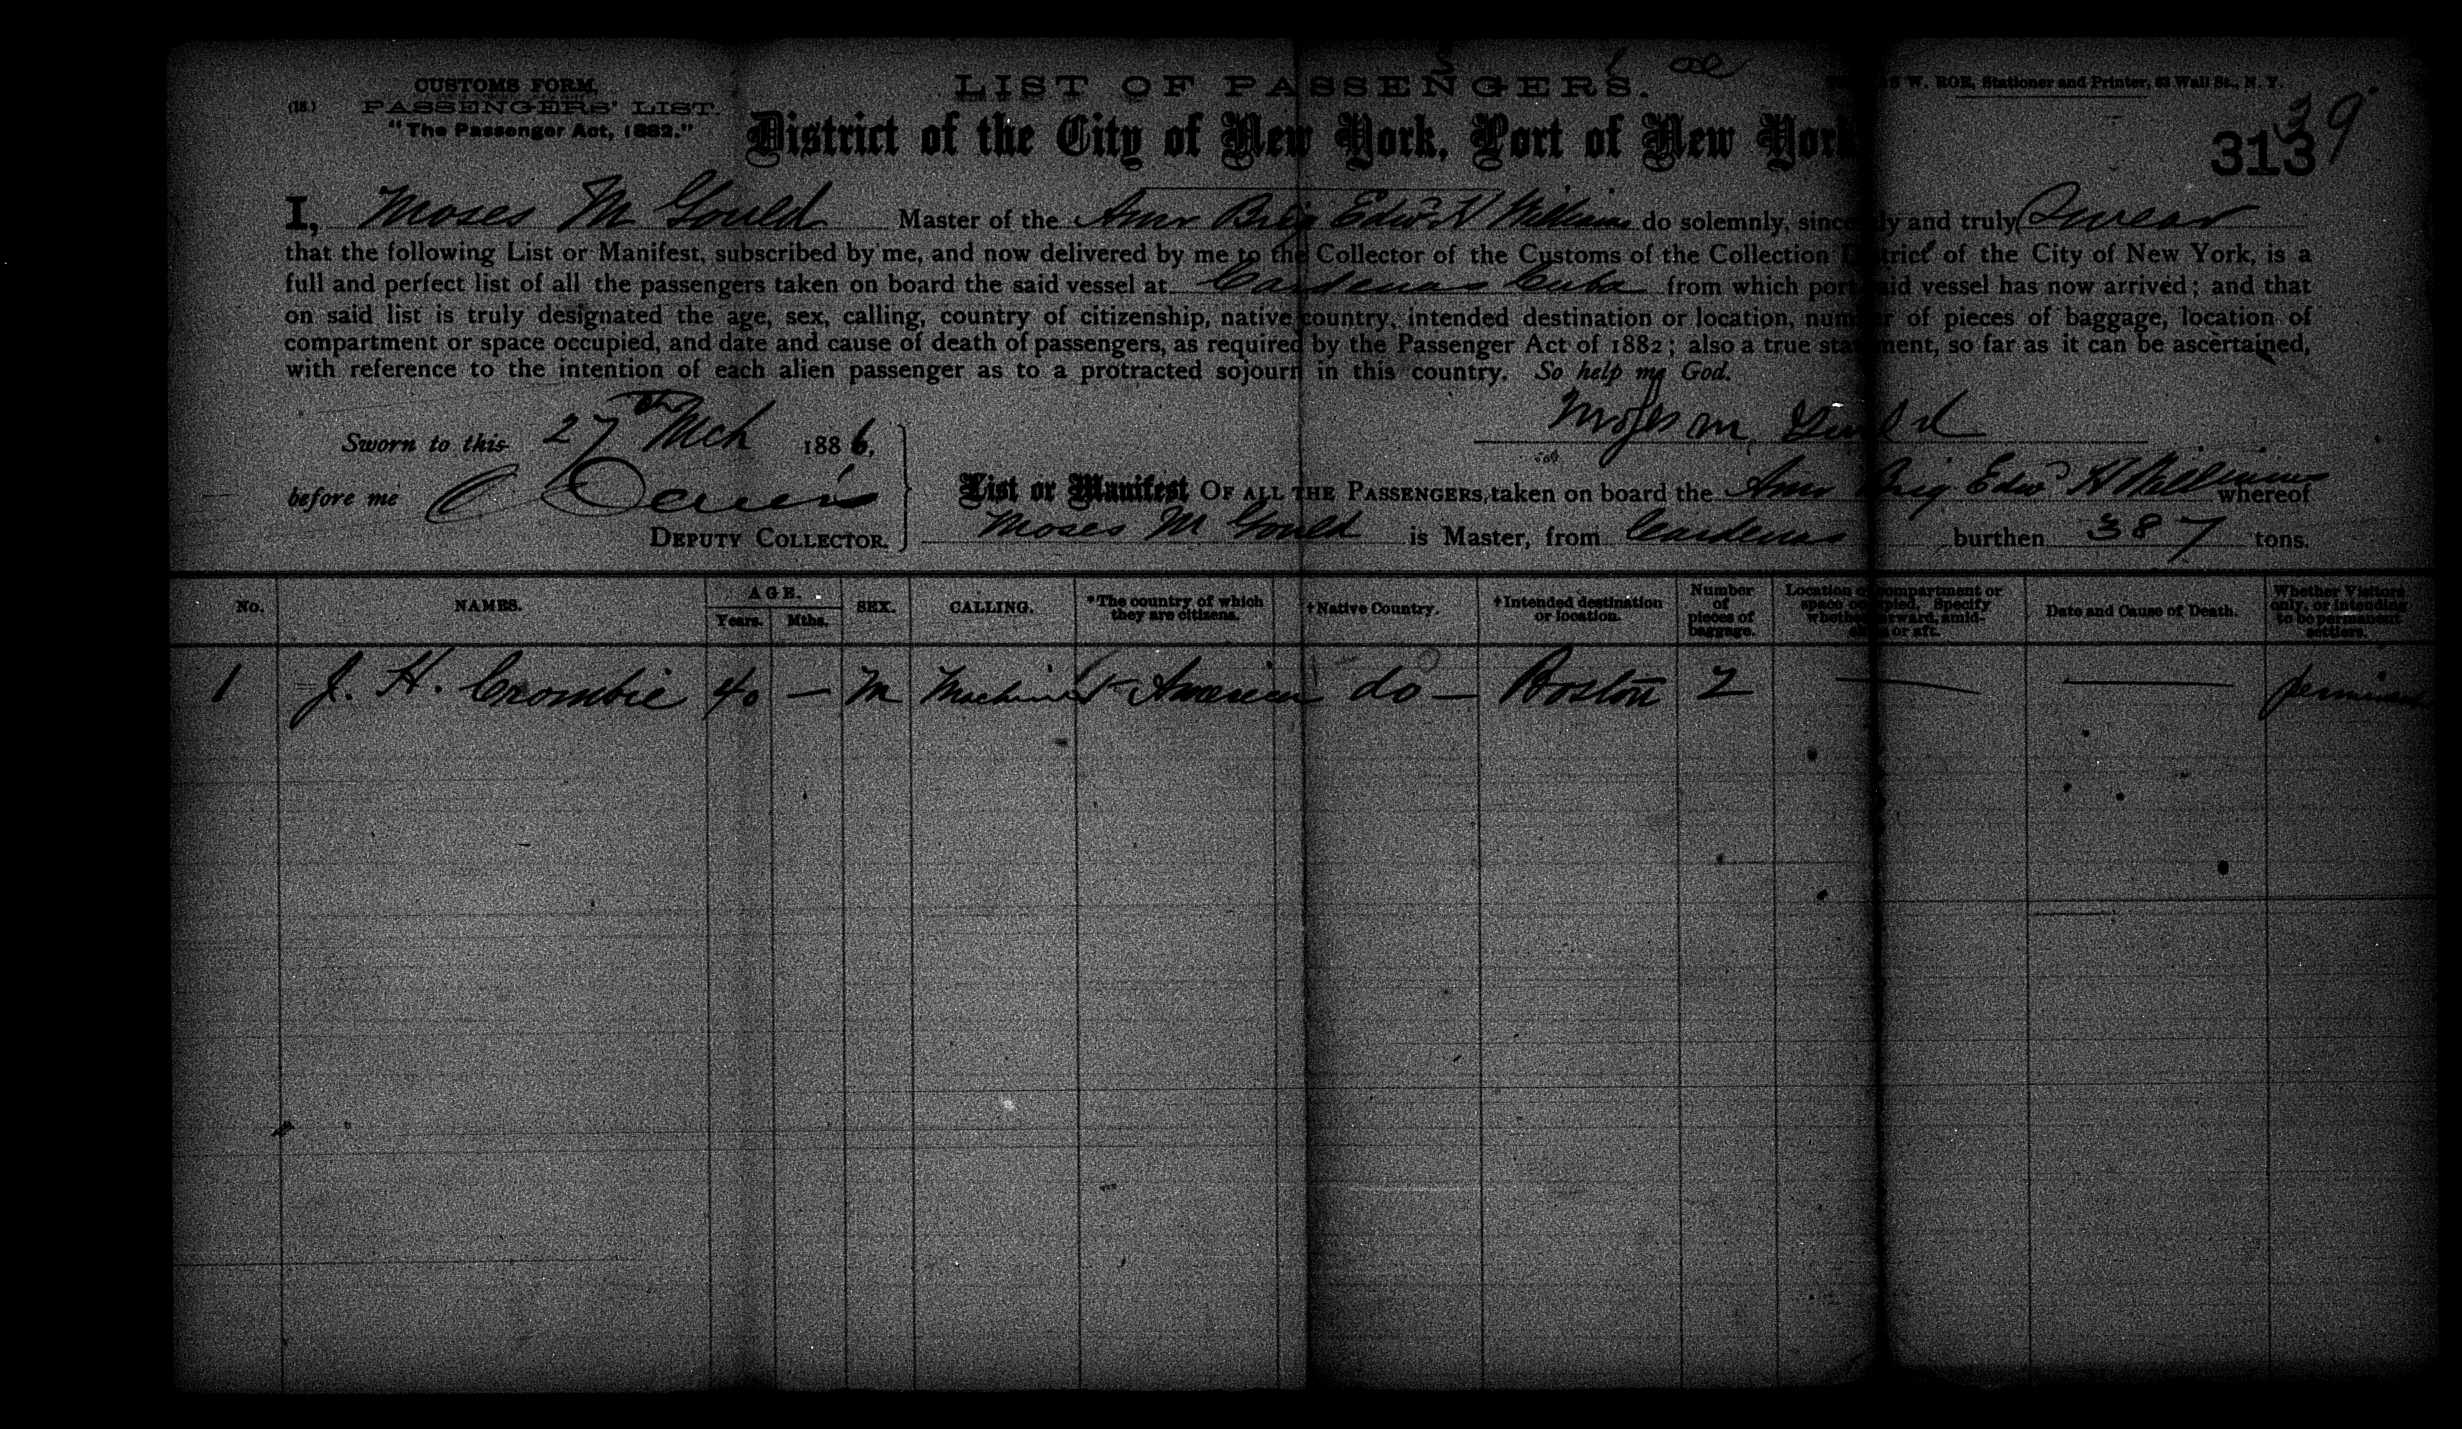 CUSTOMS FORM.
(18.) PASSENGERS' LIST.
"The Passenger Act, 1882."
LIST OF PASSENGERS.
W. ROE, Stationer and Printer, 83 Wall St., N. Y.
District of the City of New York, Port of New York
313
39
I, Moses M Gould Master of the Amr Brig Edwd H Williams do solemnly, sincerely and truly Swear
that the following List or Manifest, subscribed by me, and now delivered by me to the Collector of the Customs of the Collection District of the City of New York, is a
full and perfect list of all the passengers taken on board the said vessel at Cardenas Cuba from which port said vessel has now arrived; and that
on said list is truly designated the age, sex, calling, country of citizenship, native country, intended destination or location, number of pieces of baggage, location of
compartment or space occupied, and date and cause of death of passengers, as required by the Passenger Act of 1882; also a true statement, so far as it can be ascertained,
with reference to the intention of each alien passenger as to a protracted sojourn in this country. So help me God.
Sworn to this 27th Mch 1886,
Moses M. Gould
before me
DEPUTY COLLECTOR.
List or Manifest OF ALL THE PASSENGERS, taken on board the Amr Brig Edwd H Williams whereof
Moses M Gould is Master, from Cardenas burthen 387 tons.
No. NAMES. AGE. Years. Mths. SEX. CALLING. *The country of which they are citizens. †Native Country. †Intended destination or location. Number of pieces of baggage. Location of compartment or space occupied. Specify whether forward, amidships or aft. Date and Cause of Death. Whether Visitors only, or intending to be permanent settlers.
1 J. H. Crombie 40 — M Machinist American do — Boston 2 — —